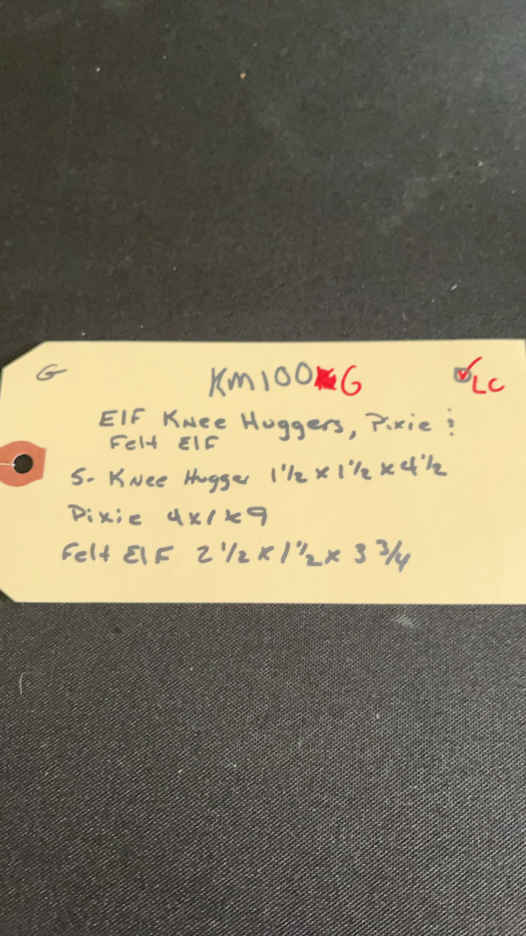 G
KM100 G
LC
Elf Knee Huggers, Pixie &
Felt Elf
5- Knee Hugger 1 1/2 x 1 1/2 x 4 1/2
Pixie 4x1x9
Felt Elf 2 1/2 x 1 1/2 x 3 3/4